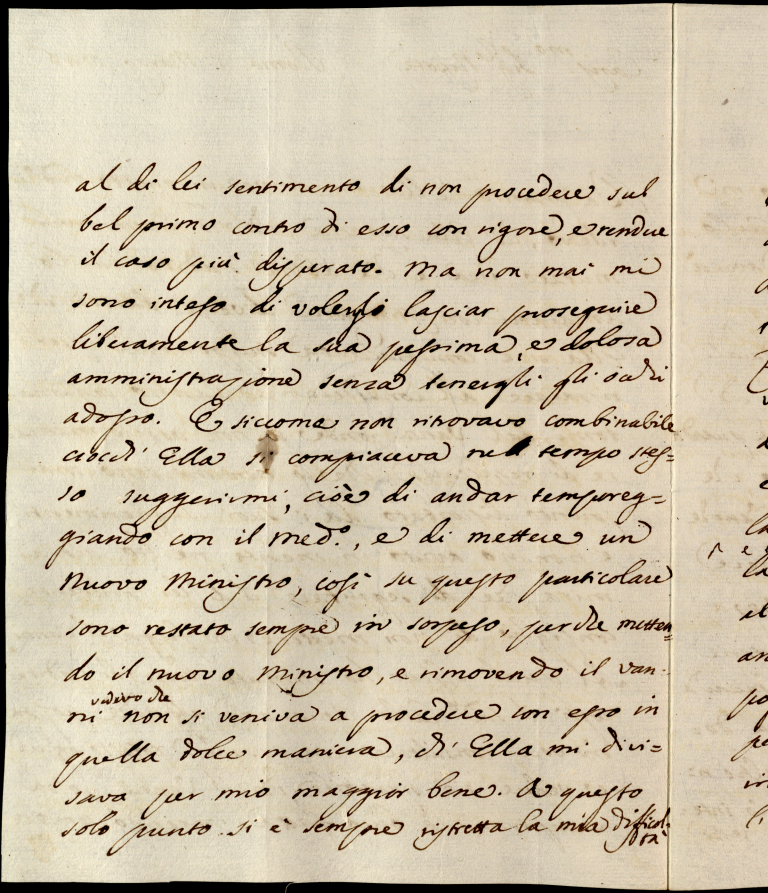 al di lei sentimento di non procedere sul
bel primo contro di esso con rigore, e rendere
il caso più disperato. Ma non mai mi
sono inteso di volergli lasciar proseguire
liberamente la sua pessima, e dolosa
amministrazione senza tenergli gli occhi
adosso. E siccome non ritrovavo combinabile
ciocch' Ella si compiaceva nel tempo stes=
so suggerirmi, cioè di andar tempereg=
giando con il med.o, e di mettere un
Nuovo Ministro, così su questo particolare
sono restato sempre in sospeso, perche metten=
do il nuovo Ministro, e rimovendo il Van=
vedevo che
ni non si veniva a procedere con esso in
quella dolce maniera, ch' Ella mi divi=
sava per mio maggior bene. A questo
solo punto si è sempre ristretta la mia difficol=
tà